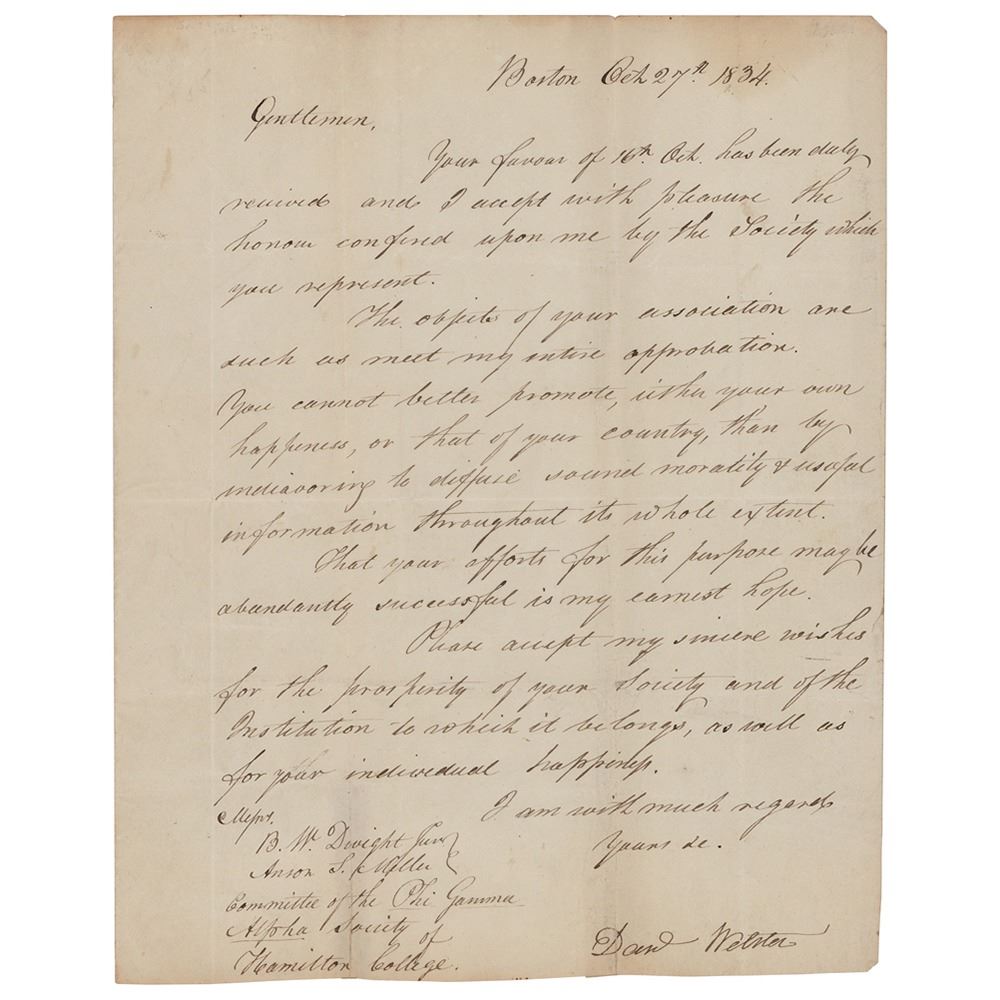 Boston Oct 27th 1834.
Gentlemen,
Your favour of 16th Oct. has been duly
recieved and I accept with pleasure the
honour confered upon me by the Society which
you represent.
The objects of your association are
such as meet my entire approbation.
You cannot better promote, either your own
happiness, or that of your country, than by
indeavoring to diffuse sound morality & useful
information throughout its whole extent.
That your efforts for this purpose may be
abundantly successful is my earnest hope.
Please accept my sincere wishes
for the prosperity of your Society and of the
Institution to which it belongs, as well as
for your individual happiness.
I am with much regard
Yours &c.
Messrs.
B. W. Dwight Jun
Anson S. Miller
Committee of the Phi Gamma
Alpha Society of
Hamilton College.
Danl Webster